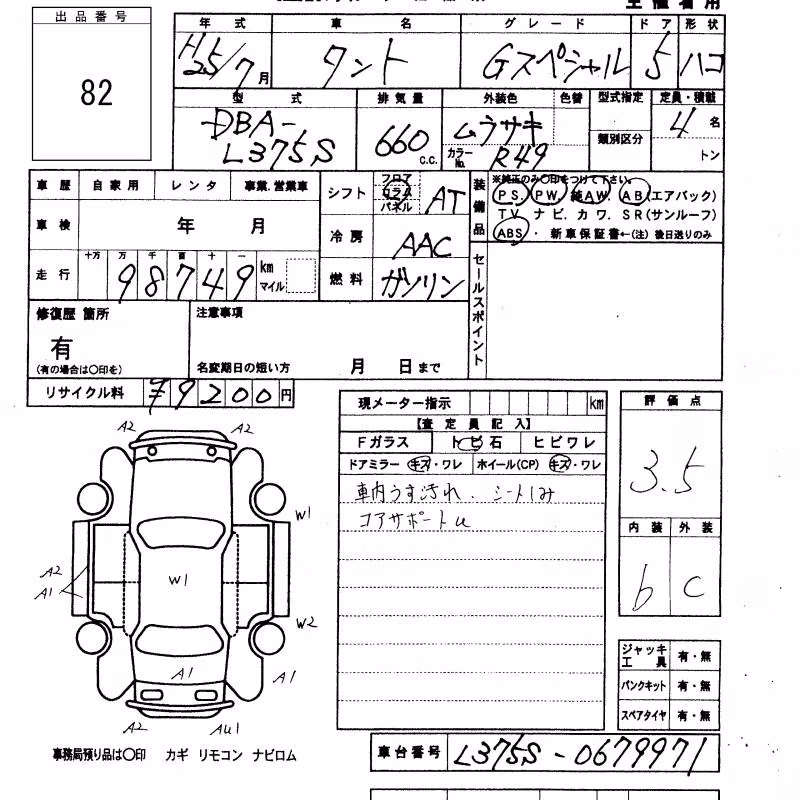 主催者用
出品番号
82
年式 車名 グレード ドア 形状
H25/7月 タント Gスペシャル 5 ハコ
型式 排気量 外装色 色替 型式指定 定員・積載
DBA-
L375S 660 c.c. ムラサキ 4名
類別区分
カラーNo. R49 トン
車歴 自家用 レンタ 事業.営業車
シフト フロア コラム パネル AT
装備品
※純正のみ○印をつけて下さい。
PS. PW. 純AW. AB(エアバック)
TV ナビ. カワ. SR(サンルーフ)
ABS ・ 新車保証書←(注)後日送りのみ
車検 年 月
冷房 AAC
走行 十万 万 千 百 十 一
98749 km マイル
燃料 ガソリン
セールスポイント
修復歴 箇所
有
(有の場合は○印を)
注意事項
名変期日の短い方 月 日まで
リサイクル料 ¥9200円
現メーター指示 km
【査定員記入】
Fガラス トビ石 ヒビワレ
ドアミラー キズ・ワレ ホイール(CP) キズ・ワレ
車内うすぎれ. シートしみ
コアサポートu
評価点
3.5
内装 外装
b C
A2 A2
W1
A2
A1
W1
W2
A1 A1
A2 AU1
ジャッキ工具 有・無
パンクキット 有・無
スペアタイヤ 有・無
事務局預り品は○印 カギ リモコン ナビロム
車台番号 L375S-0679971